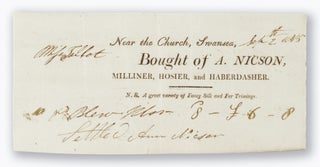 Near the Church, Swansea, Sept 2
Miss Talbot
Bought of A. NICSON,
MILLINER, HOSIER, and HABERDASHER.
N. B. A great variety of Fancy Silk and Fur Trimings.
8 - £ 6 - 8
Settled Ann Nicson